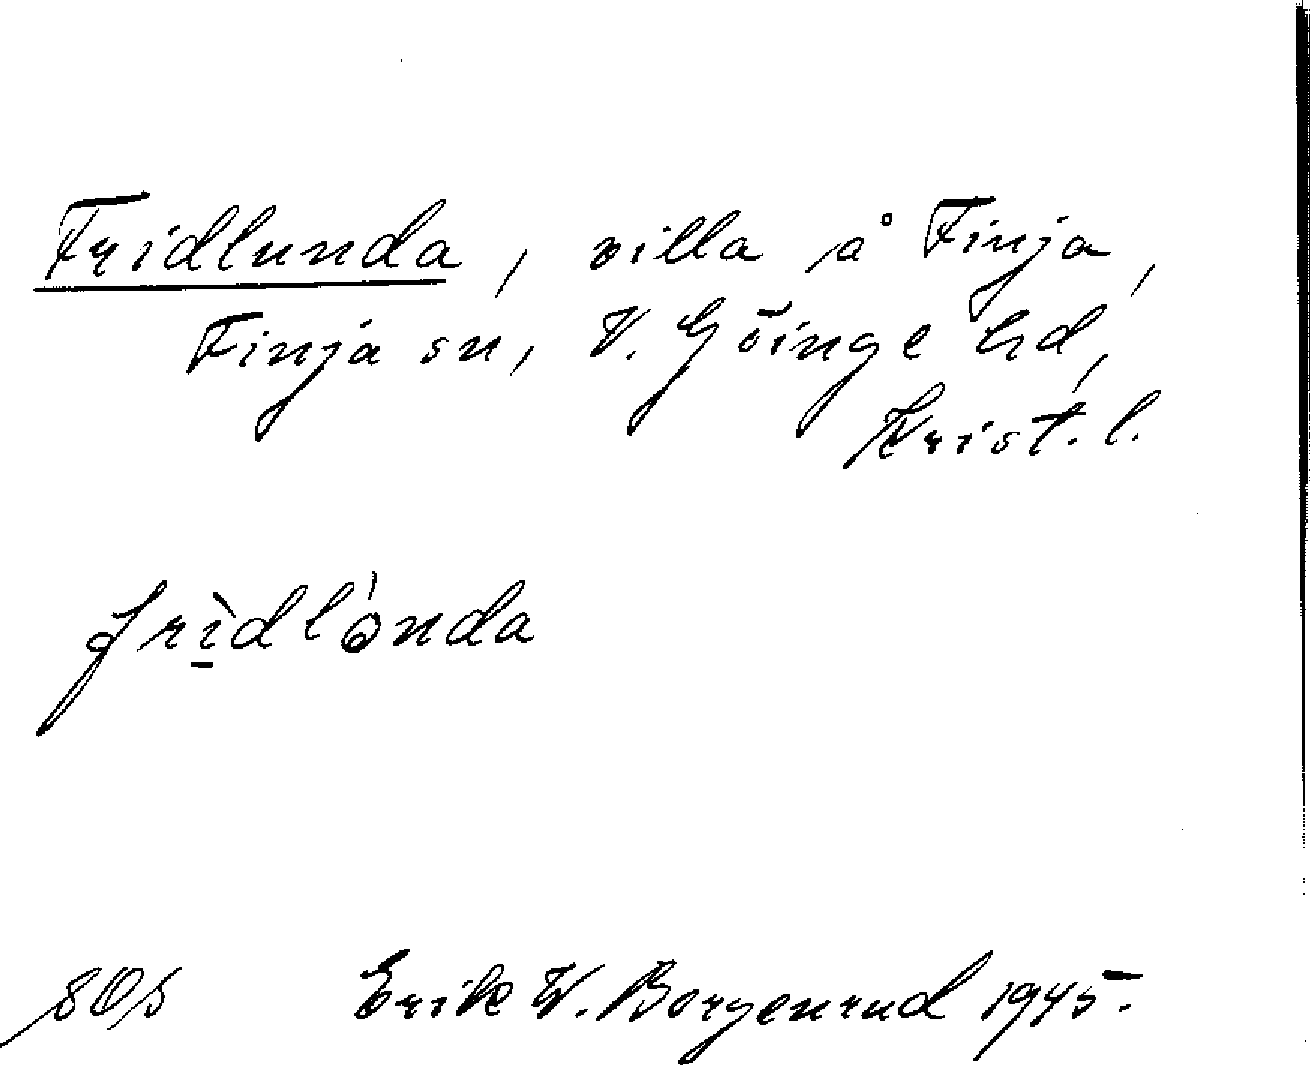 Fridlunda, villa å Finja,
Finja sn, V. Göinge hd,
Krist. l.
frìdlónda
SOS Erik W. Borgenrud 1945.